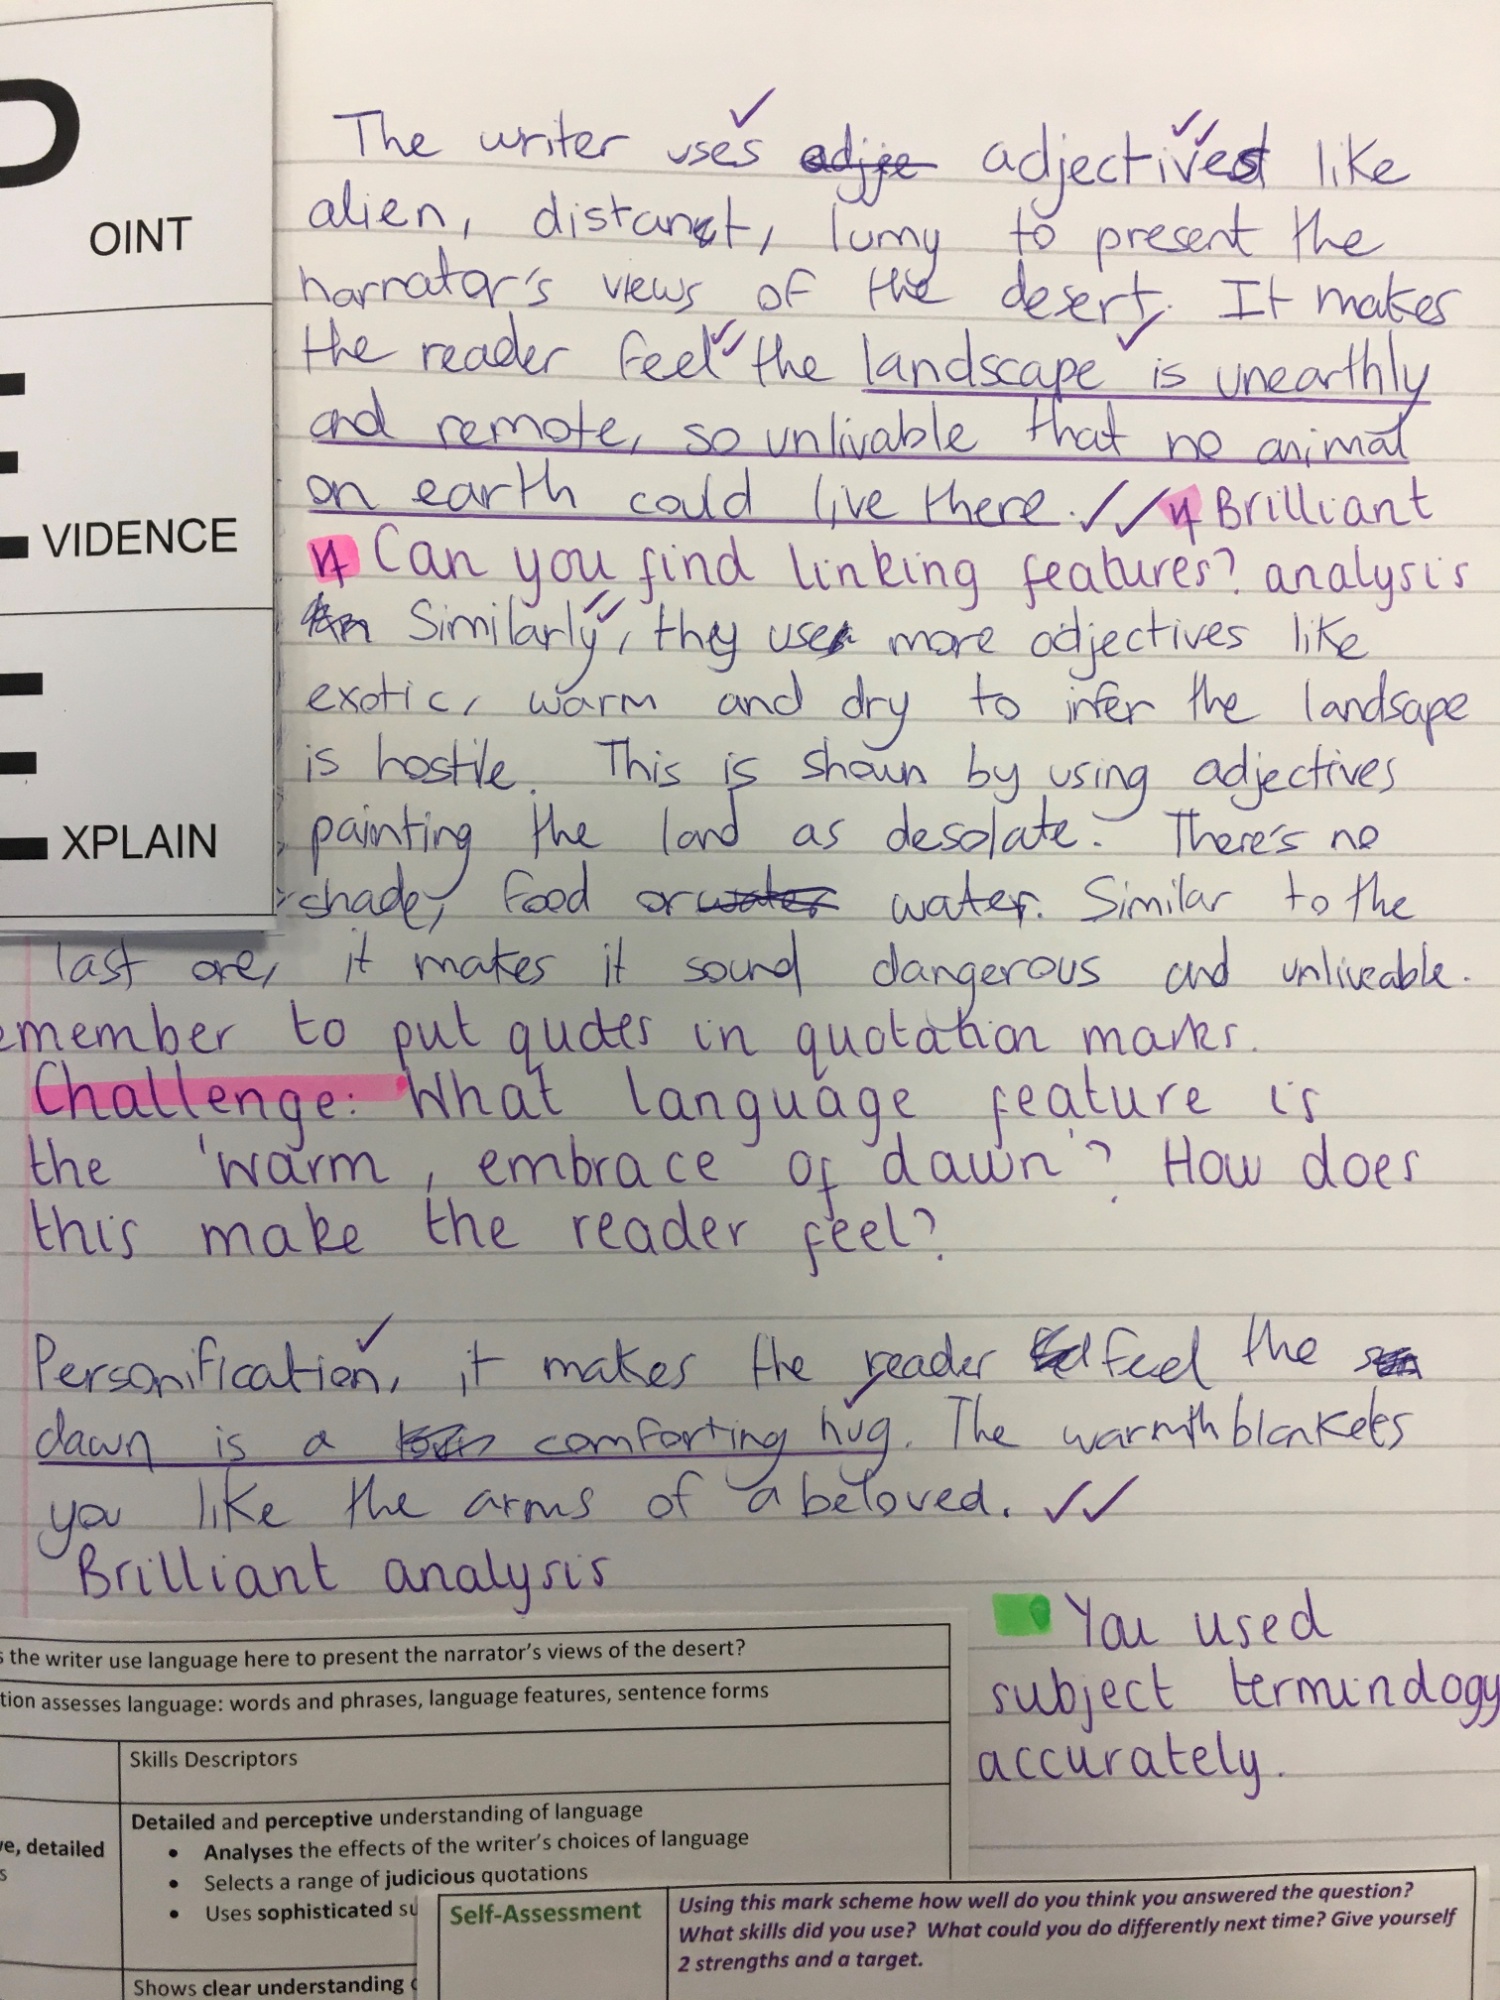 P
OINT
E
VIDENCE
E
XPLAIN
The writer uses adjectives like
alien, distant, lumy to present the
narrator's views of the desert. It makes
the reader feel the landscape is unearthly
and remote, so unlivable that no animal
on earth could live there. Brilliant
Can you find linking features? analysis
Similarly, they use more adjectives like
exotic, warm and dry to infer the landsape
is hostile. This is shown by using adjectives
painting the land as desolate. There's no
shade, food or water water. Similar to the
last one, it makes it sound dangerous and unliveable.
emember to put quotes in quotation marks.
Challenge: What language feature is
the 'warm, embrace of dawn'? How does
this make the reader feel?
Personification, it makes the reader feel the
dawn is a comforting hug. The warmth blankets
you like the arms of a beloved.
Brilliant analysis
You used
subject terminology
accurately.
s the writer use language here to present the narrator's views of the desert?
tion assesses language: words and phrases, language features, sentence forms
Skills Descriptors
Detailed and perceptive understanding of language
• Analyses the effects of the writer's choices of language
ve, detailed
s
• Selects a range of judicious quotations
• Uses sophisticated su
Shows clear understanding
Self-Assessment
Using this mark scheme how well do you think you answered the question?
What skills did you use? What could you do differently next time? Give yourself
2 strengths and a target.